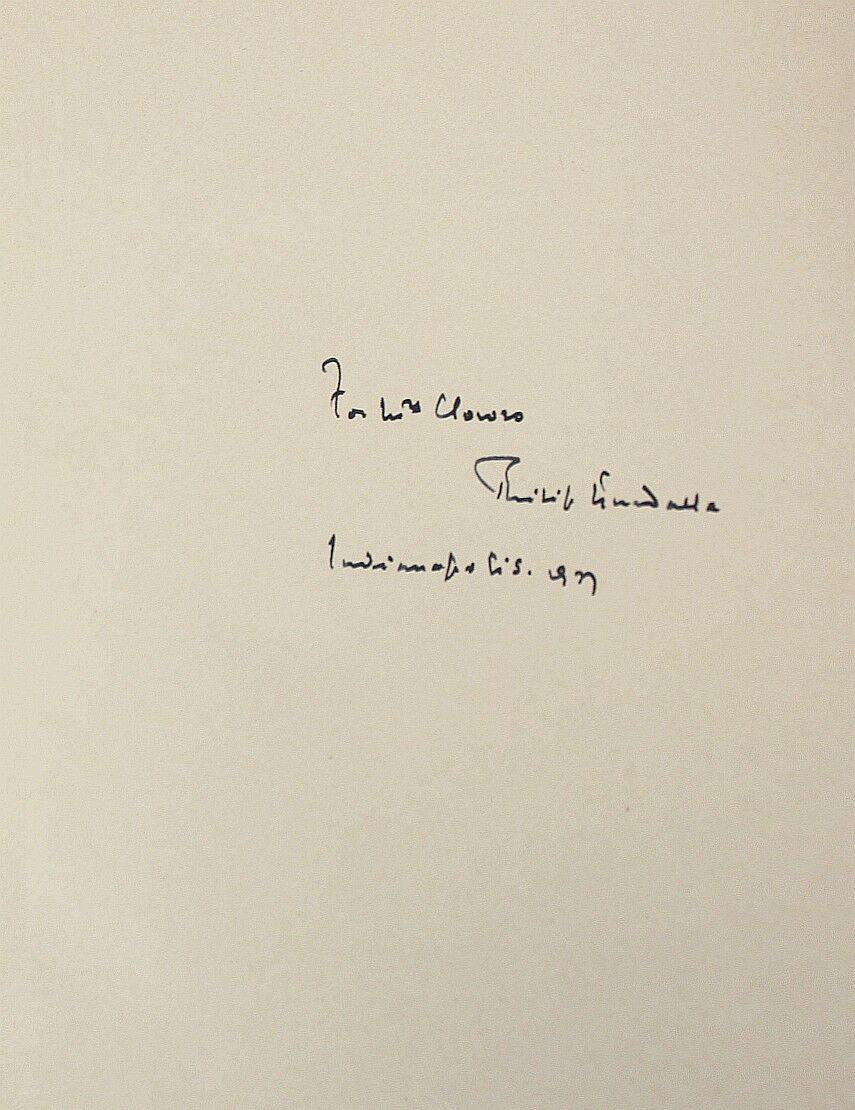 For Mrs Clowes
Philip Guedalla
Indianapolis. 1937